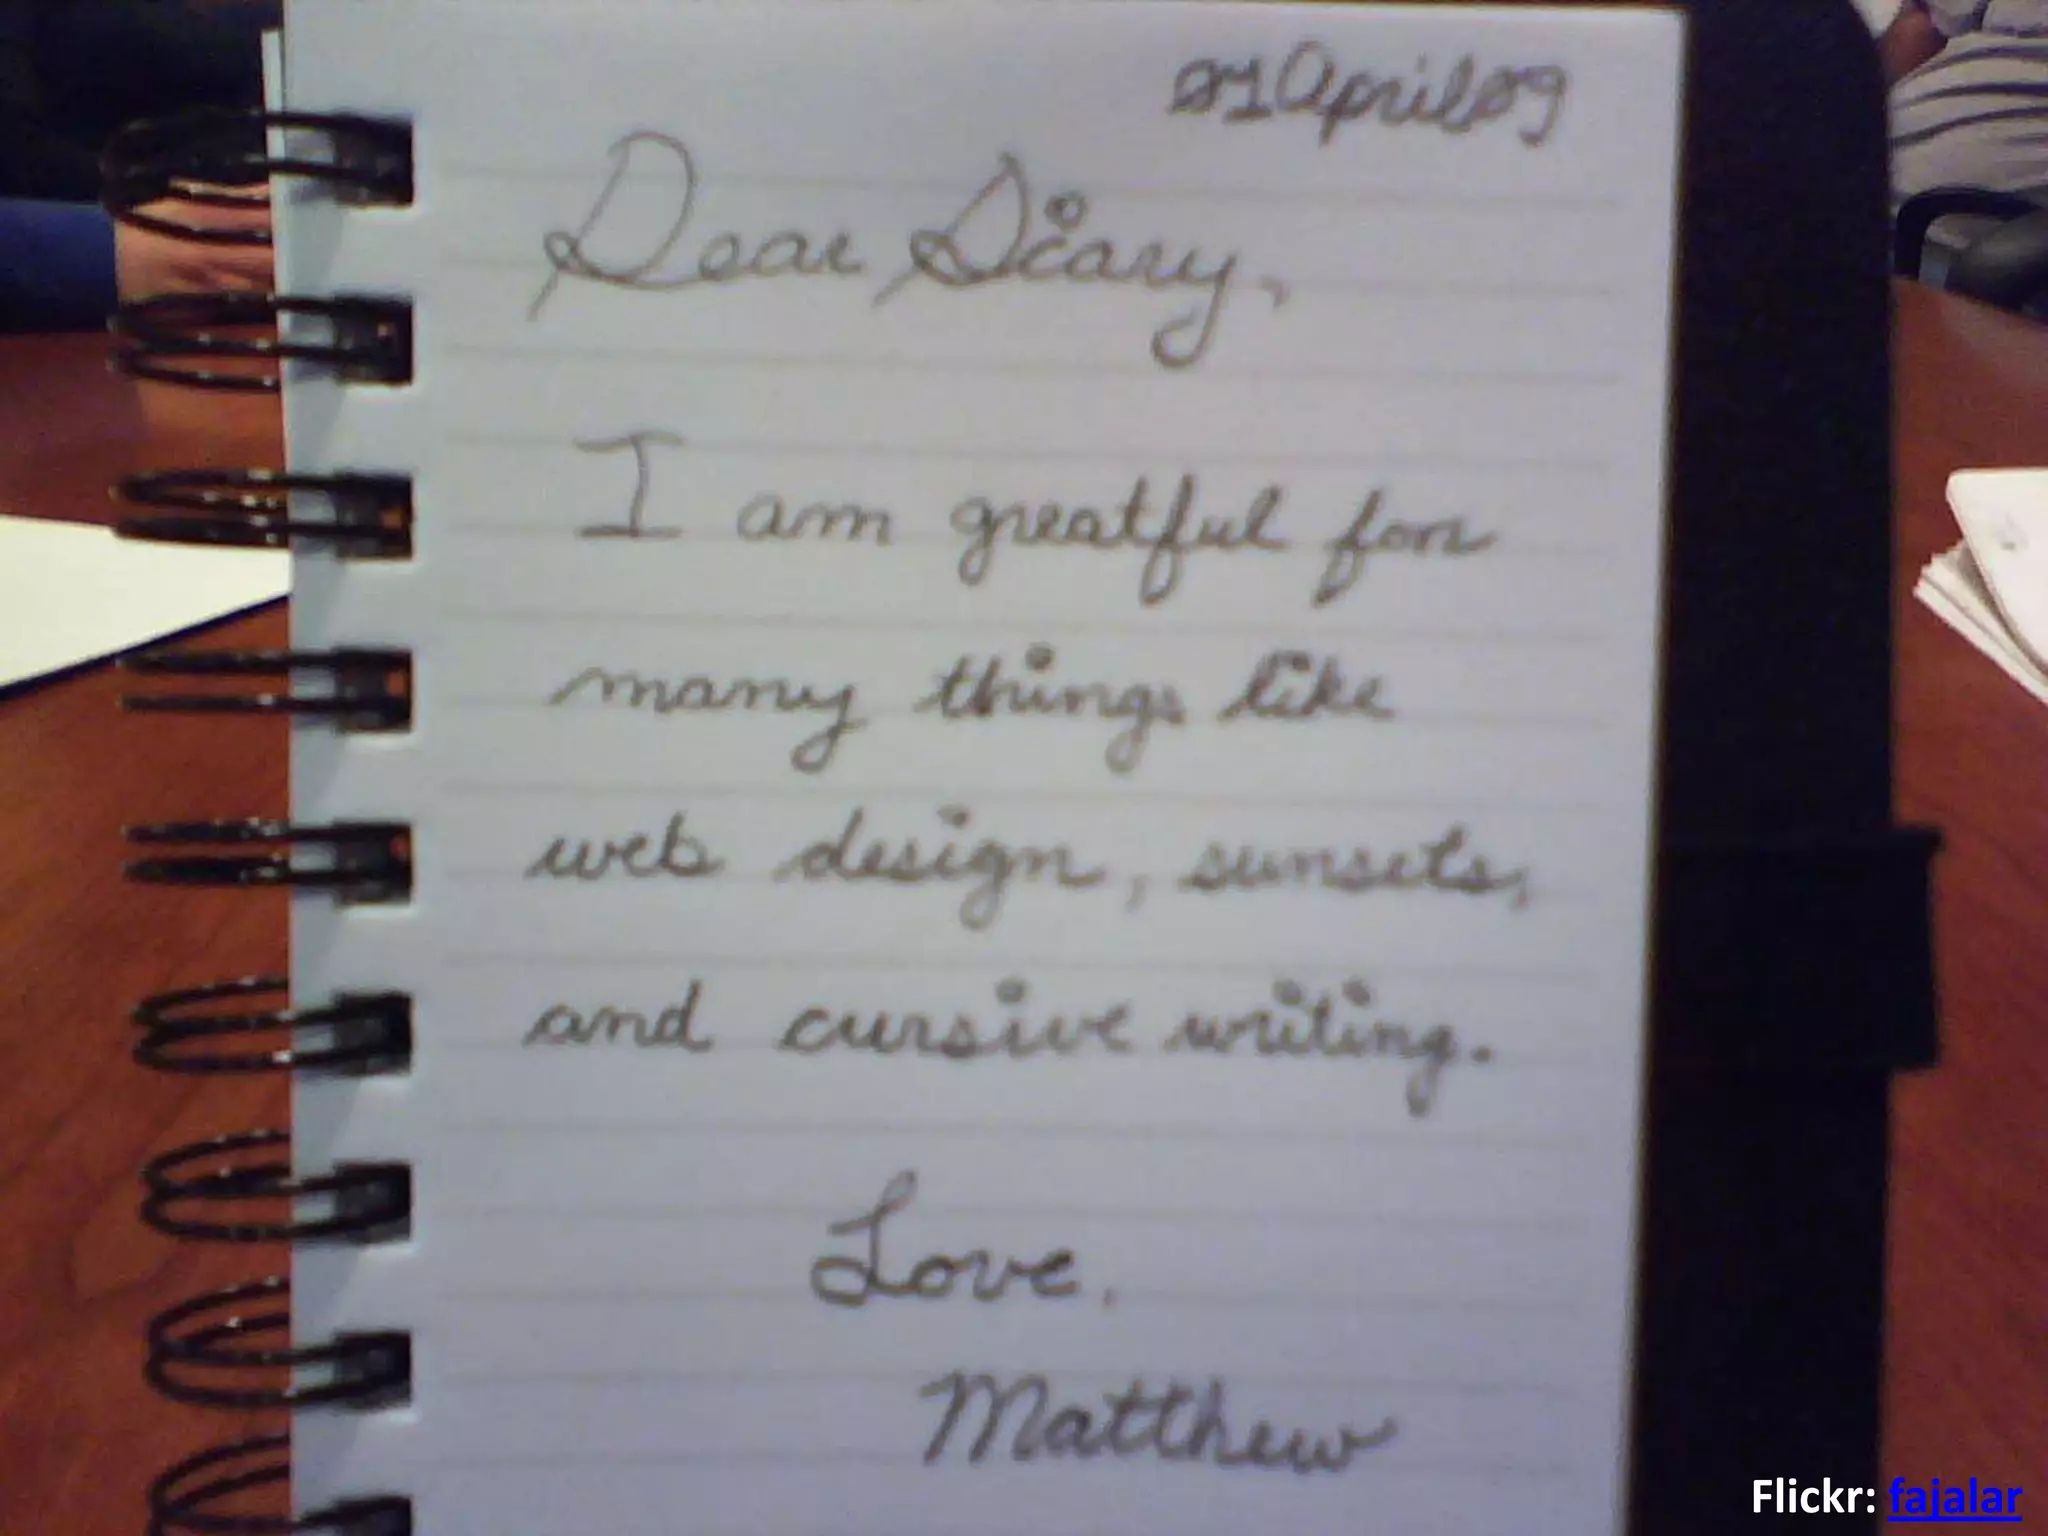 21April09
Dear Diary,
I am greatful for
many things like
web design, sunsets,
and cursive writing.
Love,
Matthew
Flickr: fajalar